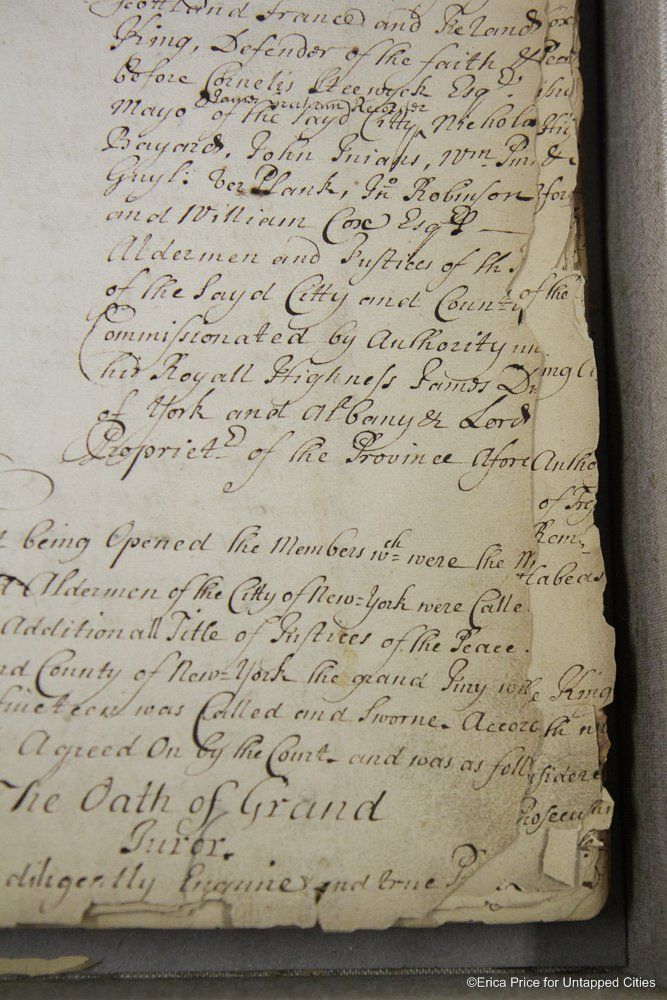 Scottland France and Ireland
King, Defender of the faith &
before Cornelis Steenwyck Esqr.
James Graham Recorder
Mayor of the Sayd Citty Nichola
Bayard, John Inians, Wm. Pin
Guyl: Ver Plank, Jno Robinson
and William Cox Esqrs
Aldermen and Justices of th
of the Sayd Citty and County of the
Commissionated by Authority un
his Royall Highness James Du
of York and Albany &c Lord
Propriet.r of the Province Afore Autho
of
being Opened the Members wch were the M Habeas
Aldermen of the Citty of New=York were Calle
Additionall Title of Justices of the Peace.
nd County of New=York the grand Jury King
was Called and Sworne. Accord
Agreed On by the Court. and was as foll
The Oath of Grand
Juror.
diligently Enquire and true P
©Erica Price for Untapped Cities